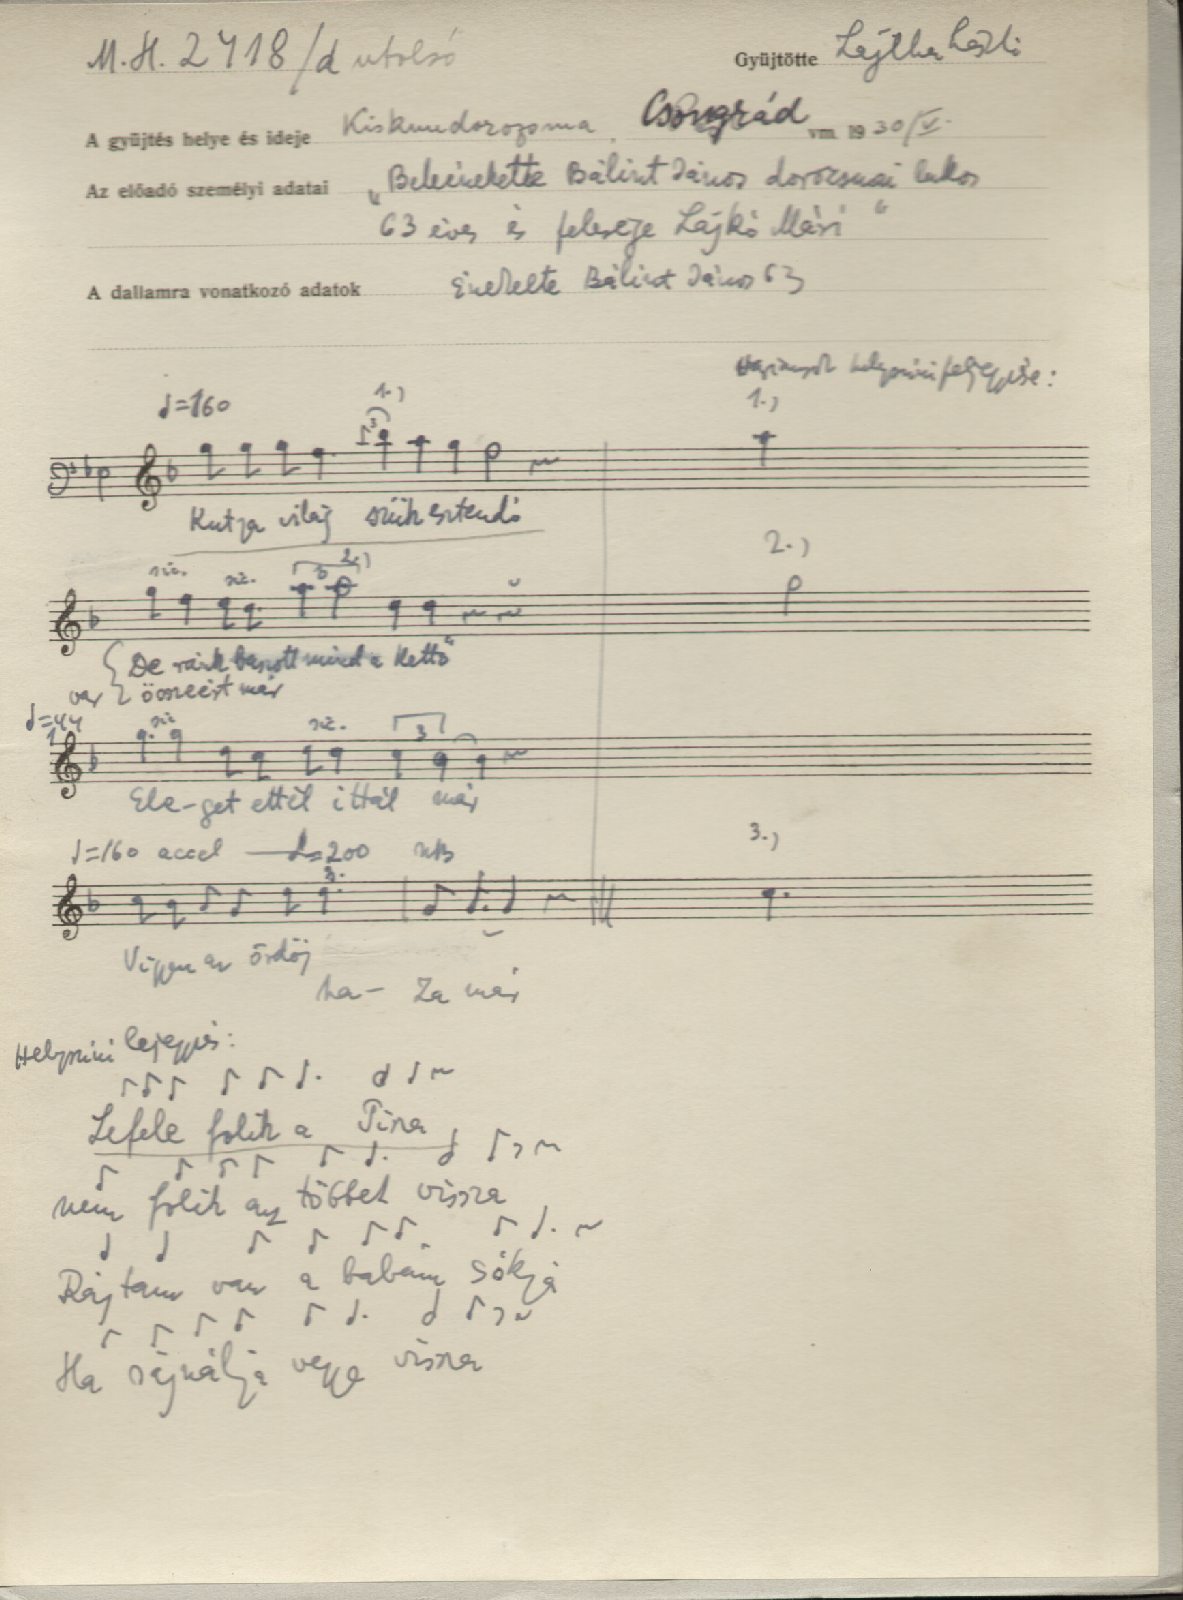 M.H. 2418/d utolsó
Gyűjtötte Lajtha László
A gyűjtés helye és ideje Kiskundorozsma, Csongrád vm. 1930/V.
Az előadó személyi adatai „Beleénekelte Bálint János dorozsmai lakos
63 éves és felesége Lajkó Mári“
A dallamra vonatkozó adatok Énekelte Bálint János 63
helyszíni feljegyzése:
♩=160 1.) 1.)
3
Kutya világ szűk esztendő
2.) 2.)
3
De ránk baszott mind a kettő“
vagy összeést már
3
Ele-get ettél ittál már
♩=160 accel 200 3.)
3.
Vigyen az ördög
ha- za már
Helyszíni lejegyzés:
Lefele folik a Tisza
nem folik az többet vissza
Rajtam van a babám
Ha sajnálja vegye vissza